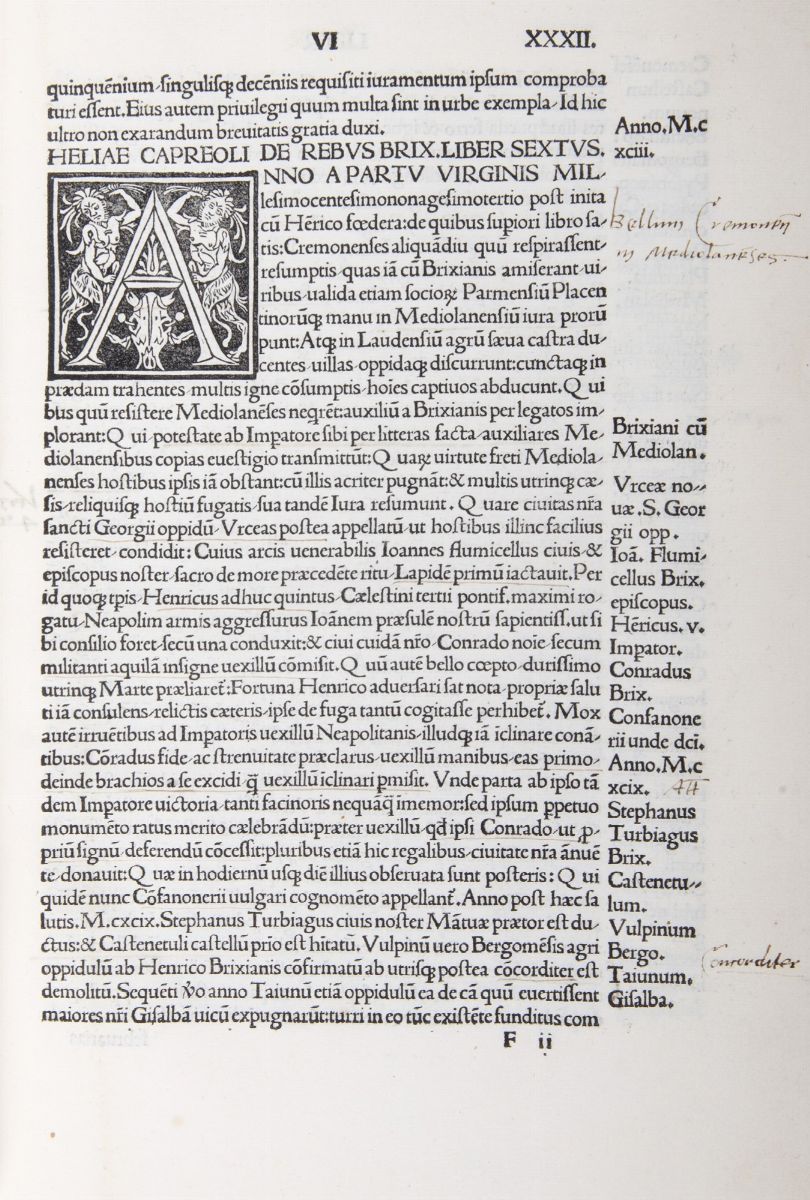 VI XXXII.
quinquēnium⸝singulisq; decēniis requisiti iuramentum ipsum comproba
turi essent.Eius autem priuilegii quum multa sint in urbe exempla⸝Id hic
ultro non exarandum breuitatis gratia duxi.
HELIAE CAPREOLI DE REBVS BRIX.LIBER SEXTVS.
ANNO A PARTV VIRGINIS MIL⸗
lesimocentesimononagesimotertio post inita
cū Hērico fœdera:de quibus supiori libro sa⸗
tis:Cremonenses aliquādiu quū respirassent⸝
resumptis⸝quas iā cū Brixianis amiserant⸝ui⸗
ribus⸝ualida etiam socioꝝ Parmensiū Placen
tinorūq; manu in Mediolanensiū iura prorū
punt:Atq; in Laudensiū agrū sæua castra du⸗
centes⸝uillas⸝oppidaq; discurrunt:cunctaq; in
prædam trahentes⸝multis igne cōsumptis⸝hoīes captiuos abducunt.Q ui
bus quū resistere Mediolanēses neqrēt:auxiliū a Brixianis per legatos im⸗
plorant:Q ui⸝potestate ab Impatore sibi per litteras facta⸝auxiliares Me⸗
diolanensibus copias euestigio transmittūt:Q uaꝝ uirtute freti Mediola⸗
nenses hostibus ipsis iā obstant:cū illis acriter pugnāt:& multis utrinq; cæ⸗
sis⸝reliquisq; hostiū fugatis⸝sua tandē Iura resumunt. Q uare ciuitas nr̄a
sancti Georgii oppidū⸝Vrceas postea appellatū⸝ut hostibus illinc facilius
resisteret⸝condidit: Cuius arcis uenerabilis Ioannes flumicellus ciuis⸝&
episcopus noster⸝sacro de more præcedēte ritu⸝Lapidē primū iactauit.Per
id quoq; tp̄is⸝Henricus adhuc quintus⸝Cælestini tertii pontif.maximi ro⸗
gatu⸝Neapolim armis aggressurus Ioānem præsulē nostrū sapientiss.ut si
bi consilio foret⸝secū una conduxit:& ciui cuidā nr̄o⸝Conrado noīe⸝secum
militanti aquilā insigne uexillū cōmisit.Q uū autē bello cœpto⸝durissimo
utrinq; Marte præliaret᷑:Fortuna Henrico aduersari sat nota⸝propriæ salu
ti iā consulens⸝relictis cæteris⸝ipse de fuga tantū cogitasse perhibet᷑. Mox
autē irruētibus ad Impatoris uexillū Neapolitanis⸝illudq; iā īclinare conā⸗
tibus:Cōradus fide⸝ac strenuitate præclarus⸝uexillū manibus⸝eas primo⸗
deinde brachios a se excidi q̄ uexillū īclinari pmisit. Vnde parta ab ipso tā
dem Impatore uictoria⸝tanti facinoris nequāq̄ īmemor:sed ipsum ppetuo
monumēto ratus merito cælebrādū:præter uexillū⸝qd̄ ipsi Conrado⸝ut⸝p⸗
priū signū⸝deferendū cōcessit:pluribus etiā hic regalibus⸝ciuitate nr̄a ānuē
te⸝donauit:Q uæ in hodiernū usq; diē illius obseruata sunt posteris: Q ui
quidē nunc Cōfanonerii uulgari cognomēto appellant᷑. Anno post hæc sa
lutis. M.cxcix. Stephanus Turbiagus ciuis noster Mātuæ prætor est du⸗
ctus:& Castenetuli castellū prīo est hītatū. Vulpinū uero Bergomēsis agri
oppidulū ab Henrico Brixianis cōfirmatū ab utrisq; postea cōcorditer est
demolitū.Sequēti ꝟo anno Taiunū etiā oppidulū ea de cā quū euertissent
maiores nr̄i Gisalbā uicū expugnarūt:turri in eo tūc existēte funditus com
F ii
Anno.M.c
xciii.
Bellum Cremonen̄
in Mediolanēses.
Brixiani cū
Mediolan.
Vrceæ no⸗
uæ. S. Geor
gii opp.
Ioā. Flumi⸗
cellus Brix.
episcopus.
Hēricus. v.
Impator.
Conradus
Brix.
Confanone
rii unde dci.
Anno.M.c
xcix.
Stephanus
Turbiagus
Brix.
Castenetu⸗
lum.
Vulpinium
Bergo.
Concorditer
Taiunum.
Gisalba.